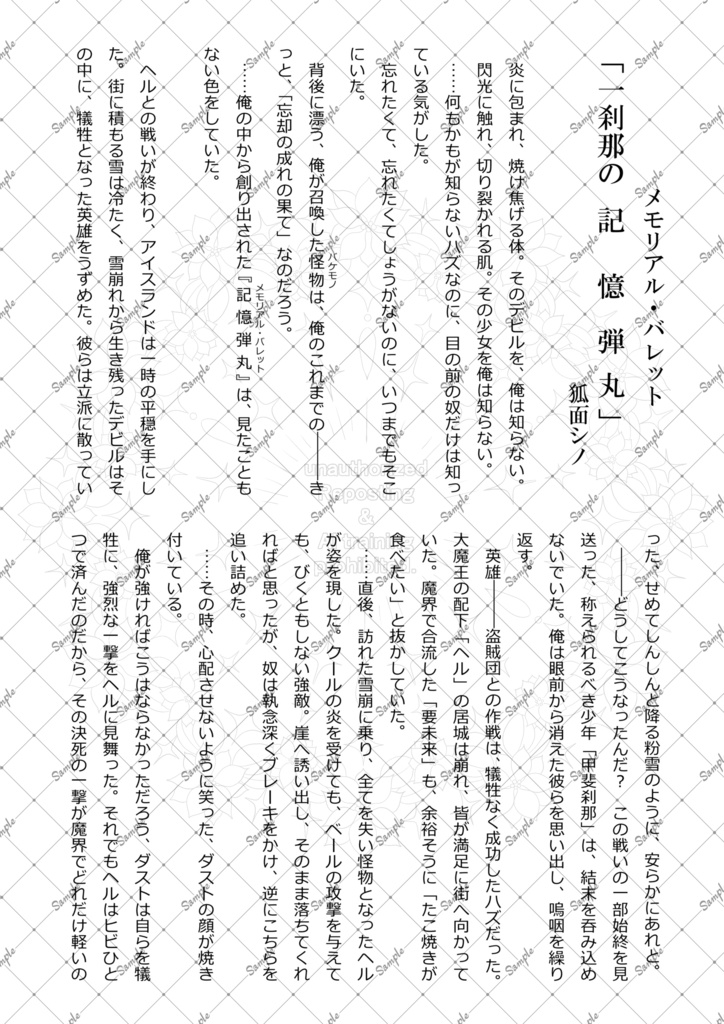 メモリアル・バレット
「一刹那の 記 憶 弾 丸」
狐面シノ
炎に包まれ、焼け焦げる体。そのデビルを、俺は知らない。
閃光に触れ、切り裂かれる肌。その少女を俺は知らない。
……何もかもが知らないハズなのに、目の前の奴だけは知っ
ている気がした。
忘れたくて、忘れたくてしょうがないのに、いつまでもそこ
にいた。
背後に漂う、俺が召喚した怪物は、俺のこれまでの――き
バケモノ
っと、「忘却の成れの果て」なのだろう。
……俺の中から創り出された『記 憶 弾 丸』は、見たことも
メモリアル・バレット
ない色をしていた。
ヘルとの戦いが終わり、アイスランドは一時の平穏を手にし
た。街に積もる雪は冷たく、雪崩れから生き残ったデビルはそ
の中に、犠牲となった英雄をうずめた。彼らは立派に散ってい
った、せめてしんしんと降る粉雪のように、安らかにあれと。
――どうしてこうなったんだ? この戦いの一部始終を見
送った、称えられるべき少年「甲斐刹那」は、結末を呑み込め
ないでいた。俺は眼前から消えた彼らを思い出し、嗚咽を繰り
返す。
英雄――盗賊団との作戦は、犠牲なく成功したハズだった。
大魔王の配下「ヘル」の居城は崩れ、皆が満足に街へ向かって
いた。魔界で合流した「要未来」も、余裕そうに「たこ焼きが
食べたい」と抜かしていた。
……直後、訪れた雪崩に乗り、全てを失い怪物となったヘル
が姿を現した。クールの炎を受けても、ベールの攻撃を与えて
も、びくともしない強敵。崖へ誘い出し、そのまま落ちてくれ
ればと思ったが、奴は執念深くブレーキをかけ、逆にこちらを
追い詰めた。
……その時、心配させないように笑った、ダストの顔が焼き
付いている。
俺が強ければこうはならなかっただろう、ダストは自らを犠
牲に、強烈な一撃をヘルに見舞った。それでもヘルはヒビひと
つで済んだのだから、その決死の一撃が魔界でどれだけ軽いの
unauthorized
Reposting
&
AI training
prohibited.
Sample